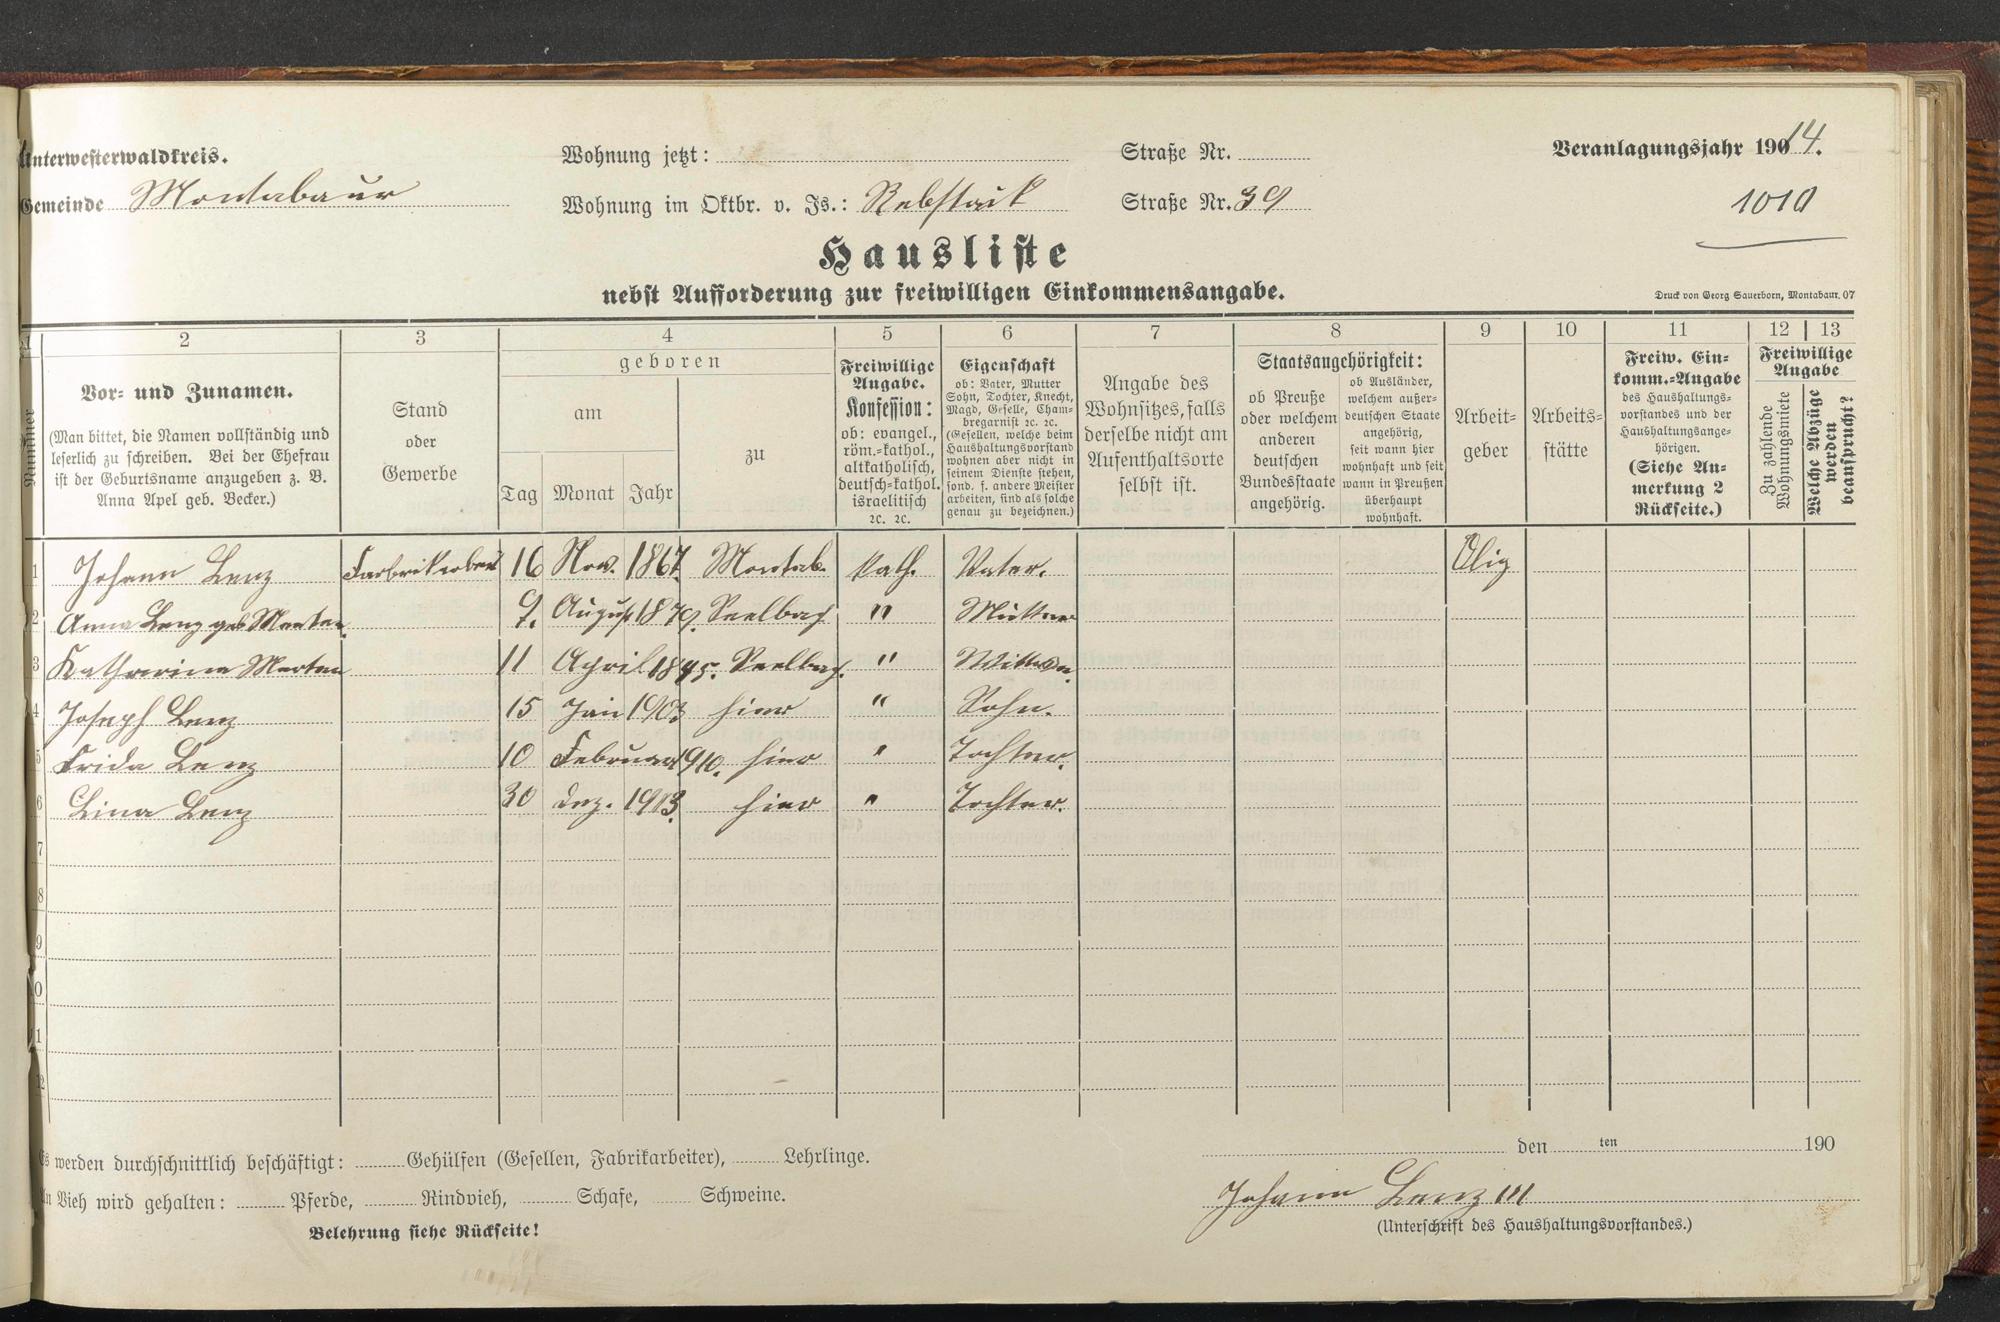 Unterwesterwaldkreis.
Gemeinde Montabaur
Wohnung jetzt: Straße Nr.
Wohnung im Oktbr. v. Js.: Rebstock Straße Nr. 39
Veranlagungsjahr 1914.
1010
Hausliste
nebst Aufforderung zur freiwilligen Einkommensangabe.
Druck von Georg Sauerborn, Montabaur. 07
1 2 3 4 5 6 7 8 9 10 11 12 13
Nummer
Vor- und Zunamen.
(Man bittet, die Namen vollständig und
leserlich zu schreiben. Bei der Ehefrau
ist der Geburtsname anzugeben z. B.
Anna Apel geb. Becker.)
Stand
oder
Gewerbe
geboren
am
Tag Monat Jahr
zu
Freiwillige
Angabe.
Konfession:
ob: evangel.,
röm.=kathol.,
altkatholisch,
deutsch=kathol.
israelitisch
2c. 2c.
Eigenschaft
ob: Vater, Mutter
Sohn, Tochter, Knecht,
Magd, Geselle, Cham-
bregarnist 2c. 2c.
(Gesellen, welche beim
Haushaltungsvorstand
wohnen aber nicht in
seinem Dienste stehen,
sond. f. andere Meister
arbeiten, sind als solche
genau zu bezeichnen.)
Angabe des
Wohnsitzes, falls
derselbe nicht am
Aufenthaltsorte
selbst ist.
Staatsangehörigkeit:
ob Preuße
oder welchem
anderen
deutschen
Bundesstaate
angehörig.
ob Ausländer,
welchem außer-
deutschen Staate
angehörig,
seit wann hier
wohnhaft und seit
wann in Preußen
überhaupt
wohnhaft.
Arbeit-
geber
Arbeits-
stätte
Freiw. Ein-
komm.=Angabe
des Haushaltungs-
vorstandes und der
Haushaltungsange-
hörigen.
(Siehe An-
merkung 2
Rückseite.)
Freiwillige
Angabe
Zu zahlende
Wohnungsmiete
Welche Abzüge
werden
beansprucht?
1 Johann Lenz Farbrikarbeit 16 Nov. 1867. Montab. kath. Vater. Olig
2 Anna Lenz geb Merten. 9. August 1879. Seelbach " Mutter
3 Katharina Merten 11 April 1845. Seelbach. " Wittwe.
4 Joseph Lenz 15 Jan 1903 hier " Sohn.
5 Frida Lenz 10 Februar 1910. hier " Tochter.
6 Lina Lenz 30 Dez. 1913. hier " Tochter.
7
8
9
10
11
12
Es werden durchschnittlich beschäftigt: Gehülfen (Gesellen, Fabrikarbeiter), Lehrlinge.
An Vieh wird gehalten: Pferde, Rindvieh, Schafe, Schweine.
Belehrung siehe Rückseite!
den ten 190
Johann Lenz III
(Unterschrift des Haushaltungsvorstandes.)